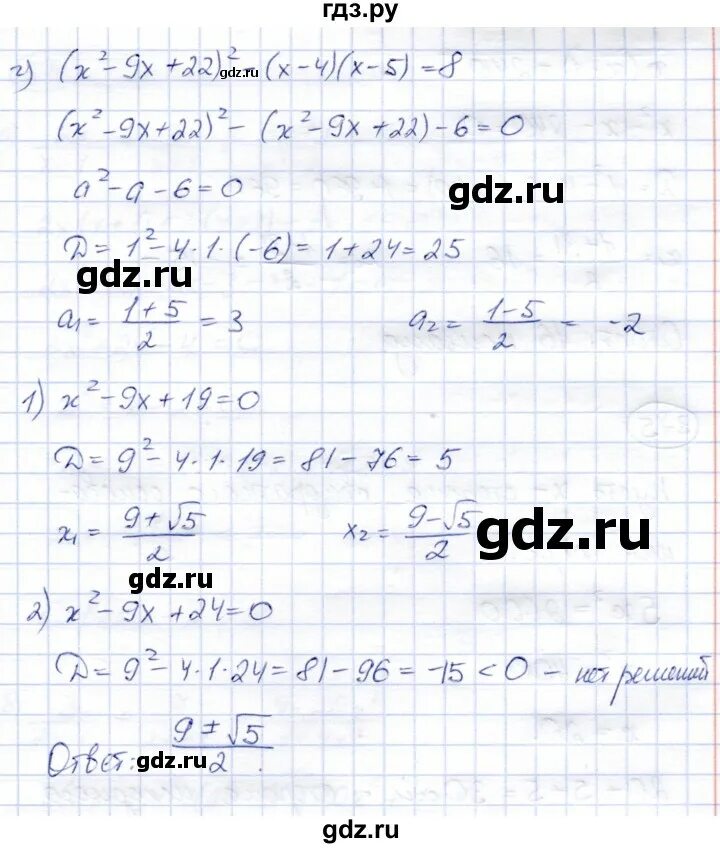 гдз.ру
г) (x² - 9x + 22)² - (x - 4)(x - 5) = 8
gdz.ru
(x² - 9x + 22)² - (x² - 9x + 22) - 6 = 0
a² - a - 6 = 0
gdz.ru
Д = 1² - 4·1·(-6) = 1 + 24 = 25
gdz.ru
a₁ = (1+5)/2 = 3 a₂ = (1-5)/2 = -2
1) x² - 9x + 19 = 0
Д = 9² - 4·1·19 = 81 - 76 = 5
x₁ = (9+√5)/2 x₂ = (9-√5)/2
gdz.ru
gdz.ru
2) x² - 9x + 24 = 0
Д = 9² - 4·1·24 = 81 - 96 = -15 < 0 - нет решений
Ответ: (9±√5)/2.
gdz.ru
gdz.ru